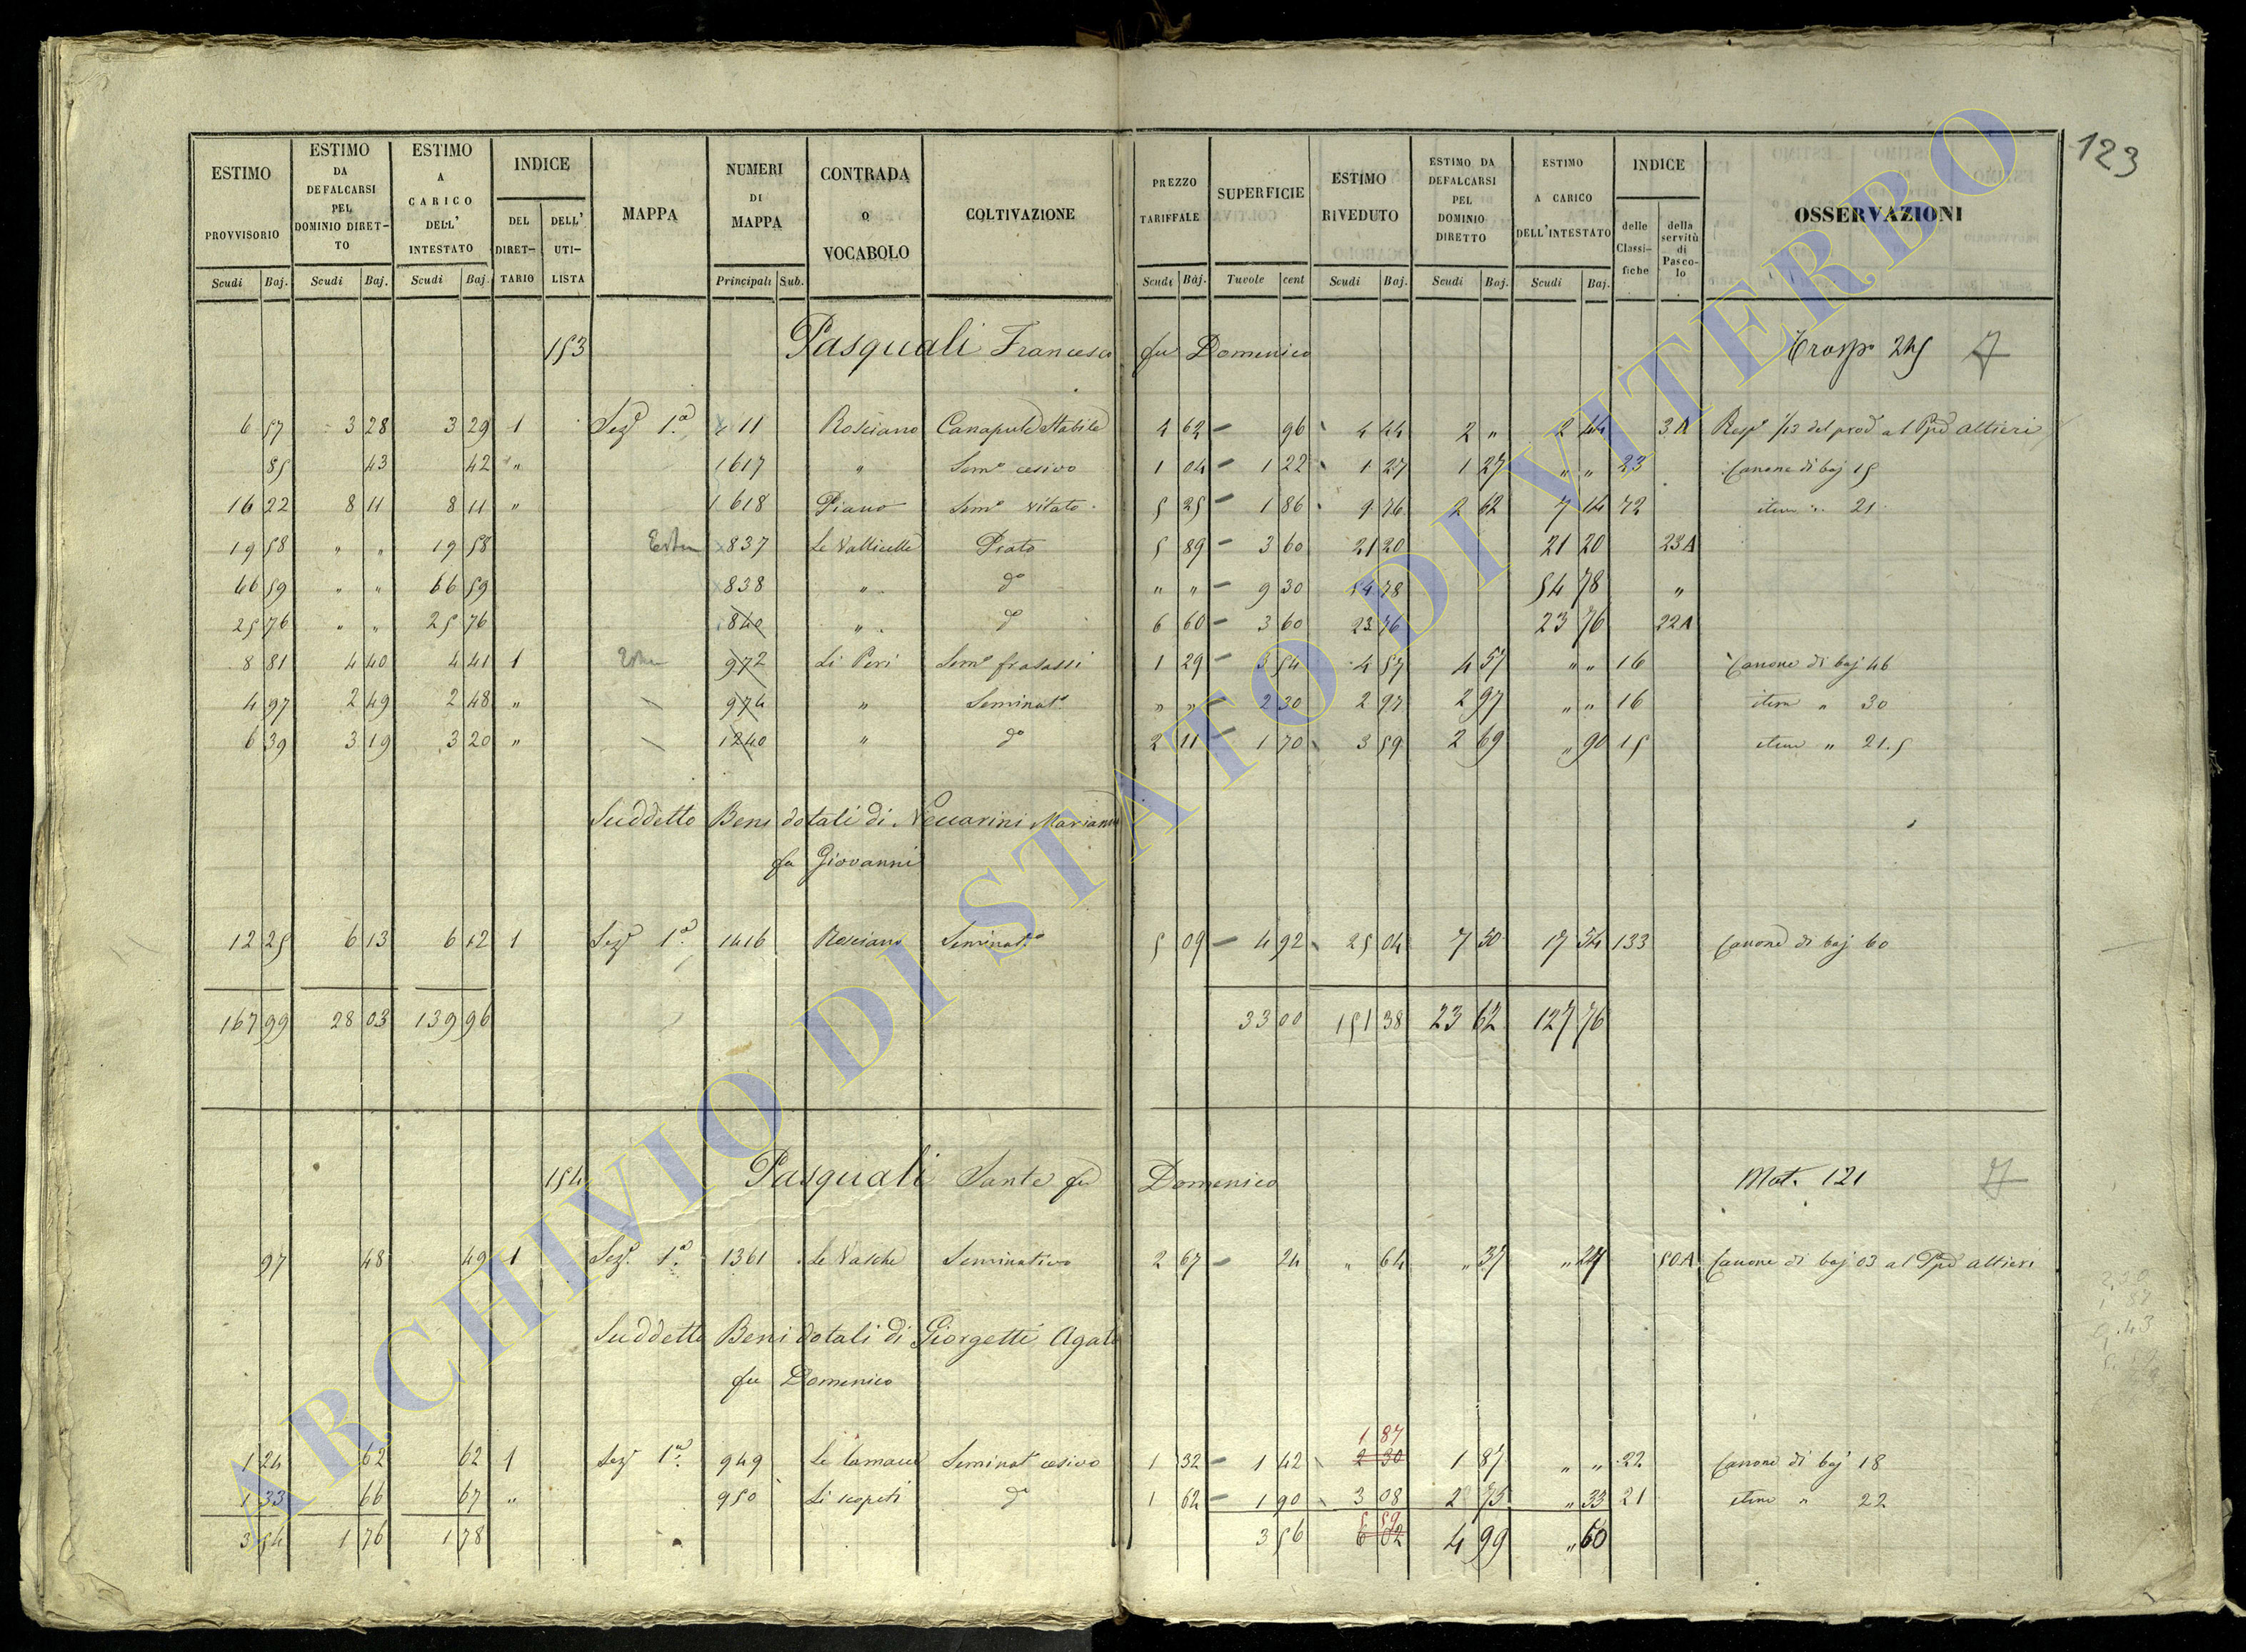 123
ESTIMO PROVVISORIO Scudi Baj.
ESTIMO DA DEFALCARSI PEL DOMINIO DIRETTO Scudi Baj.
ESTIMO A CARICO DELL' INTESTATO Scudi Baj.
INDICE DEL DIRETTARIO DELL' UTILISTA
MAPPA
NUMERI DI MAPPA Principali Sub.
CONTRADA o VOCABOLO
COLTIVAZIONE
PREZZO TARIFFALE Scudi Baj.
SUPERFICIE Tavole cent
ESTIMO RIVEDUTO Scudi Baj.
ESTIMO DA DEFALCARSI PEL DOMINIO DIRETTO Scudi Baj.
ESTIMO A CARICO DELL'INTESTATO Scudi Baj.
INDICE delle Classifiche della servitù di Pascolo
OSSERVAZIONI
153 Pasquali Francesco fu Domenico Trasp.o 245
6 57 3 28 3 29 1 Sez. 1.a 11 Rosciano Canapule Stabile 4 62 96 4 44 2 " 2 44 3A
85 43 42 " 1617 " Sem.o cesivo 1 04 1 22 1 27 1 27 " " 23 Canone di baj 15
16 22 8 11 8 11 " 1618 Piano Sem.o vitato 5 25 1 86 9 76 2 62 7 14 72 item " 21
19 58 " " 19 58 837 Le Vallicelle Prato 5 89 3 60 21 20 21 20 23A
66 59 " " 66 59 838 " d.o " " 9 30 54 78 54 78 "
25 76 " " 25 76 840 " d.o 6 60 3 60 23 76 23 76 22A
8 81 4 40 4 41 1 972 Li Peri Sem.o frasassi 1 29 3 54 4 57 4 57 " " 16 Canone di baj 46
4 97 2 49 2 48 " 974 " Seminat.o " " 2 30 2 97 2 97 " " 16 item " 30
6 39 3 19 3 20 " 1240 " d.o 2 11 1 70 3 59 2 69 " 90 15 item " 21.5
Suddetto Beni dotali di Neccarini Marianna
fu Giovanni
12 25 6 13 6 12 1 Sez. 1.a 1416 Rosciano Seminat.o 5 09 4 92 25 04 7 50 17 54 133 Canone di baj 60
167 99 28 03 139 96 33 00 151 38 23 62 127 76
154 Pasquali Sante fu Domenico Mat. 121
97 48 49 1 Sez. 1.a 1361 Le Vasche Seminativo 2 67 24 " 64 " 37 " 27 50A Canone di baj 03 al Ppe Altieri
Suddetto Beni dotali di Giorgetti Agata
fu Domenico
1 87
1 24 62 62 1 Sez. 1.a 949 Seminat.o cesivo 1 32 1 42 2 30 1 87 " " 22 Canone di baj 18
1 33 66 67 " 950 Li scopeti d.o 1 62 1 90 3 08 2 75 " 33 21 item " 22
5 59
3 54 1 76 1 78 3 56 6 02 4 99 " 60
ARCHIVIO DI STATO DI VITERBO